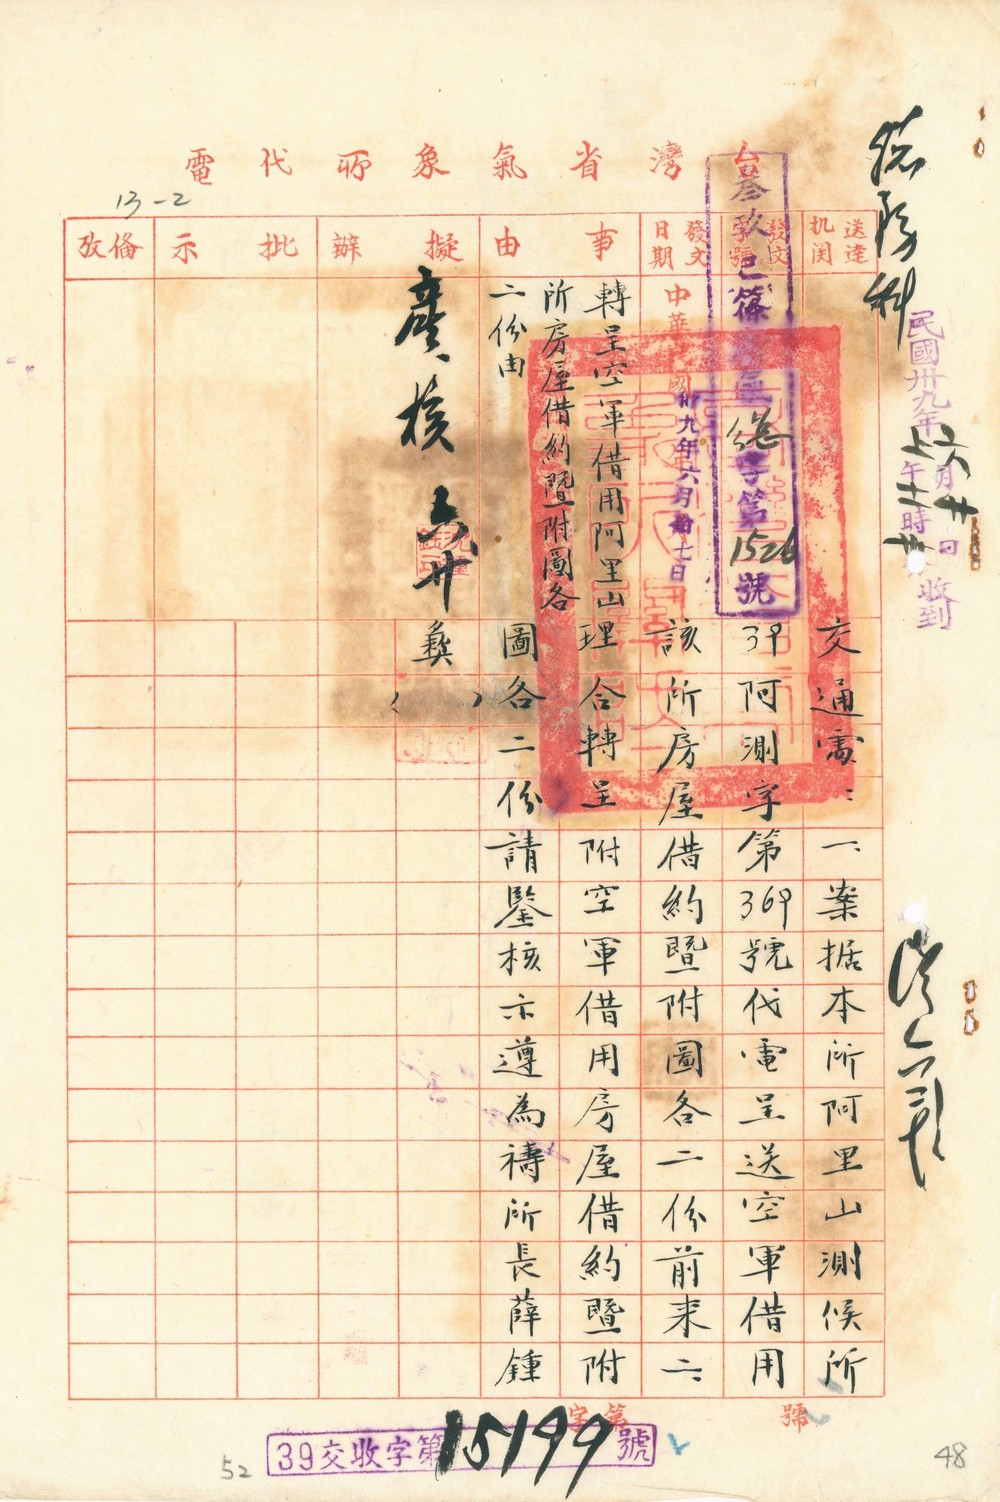 台灣省氣象所代電
13-2
送達機関
發文字號
發文日期
事由
擬辦
批示
備攷
民國卅九年六月廿日
上午十一時 收到
總務科
叁玖巳篠
總字第1526號
中華民國卅九年六月拾七日
轉呈空軍借用阿里山
所房屋借約暨附圖各
二份由
交通處：一、案据本所阿里山測候所
39阿測字第369號代電呈送空軍借用
該所房屋借約暨附圖各二份前来二、
理合轉呈附空軍借用房屋借約暨附
圖各二份請鑒核示遵為禱所長薛鍾
彝（ ）
核 六廿
字第 號
39交收字第15199號
52
48